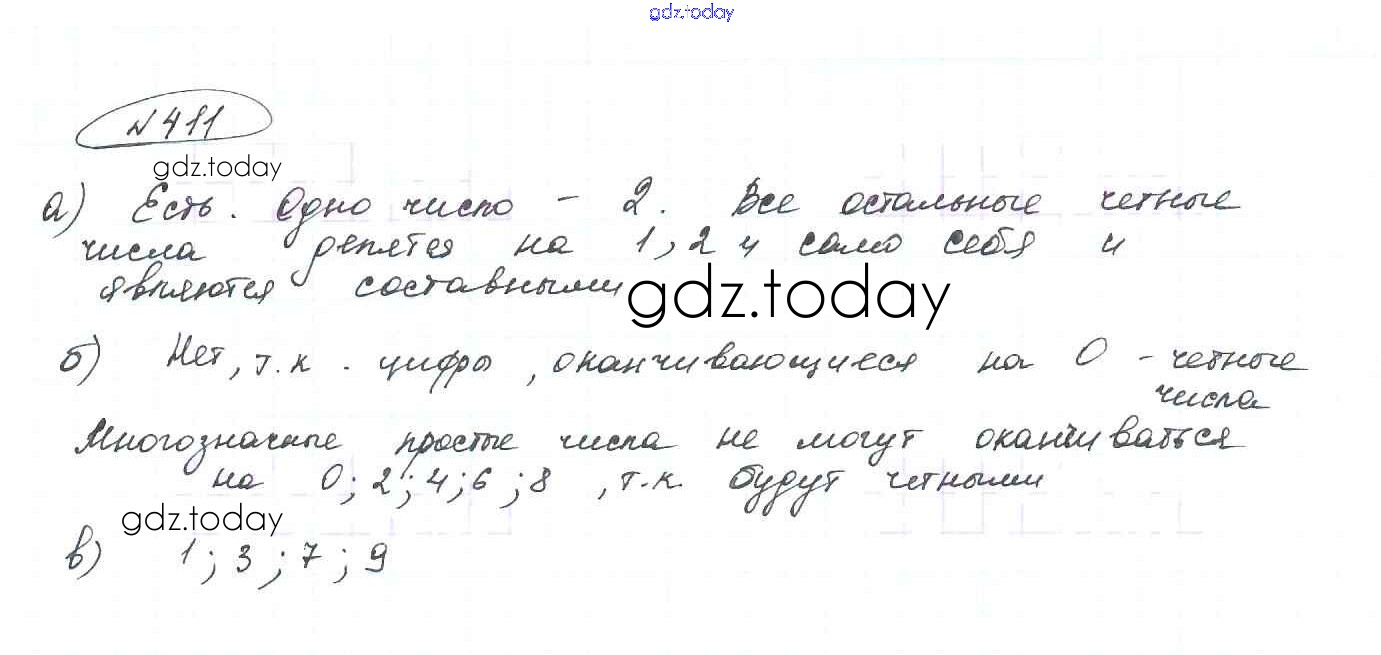 gdz.today
N 411
gdz.today
а) Есть. Одно число - 2. Все остальные четные
числа делятся на 1, 2 и само себя и
являются составными
gdz.today
б) Нет, т.к. цифры, оканчивающиеся на 0 - четные
числа
Многозначные простые числа не могут оканчиваться
на 0; 2; 4; 6; 8, т.к. будут четными
gdz.today
в) 1; 3; 7; 9